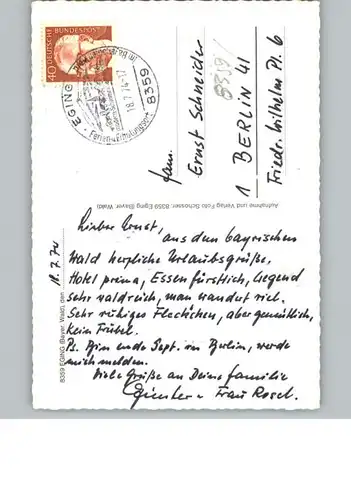 DEUTSCHE BUNDESPOST
40
EGING
8359
Ferien-u. Erholungsort
8359/
Fam.
Ernst Schneider
1 BERLIN 41
Friedr. Wilhelm Pl. 6
Aufnahme und Verlag Foto Schosser, 8359 Eging (Bayer. Wald)
8359 EGING (Bayer. Wald), den
18.7.74
Lieber Ernst,
aus dem bayrischen
Wald herzliche Urlaubsgrüße,
Hotel prima, Essen fürstlich, Gegend
sehr waldreich, man wandert viel.
Sehr ruhiges Fleckchen, aber gemütlich,
Kein Trubel.
Ps. Bin ende Sept. in Berlin, werde
mich melden.
Viele Grüße an Deine Familie
Günther u. Frau Rosel.